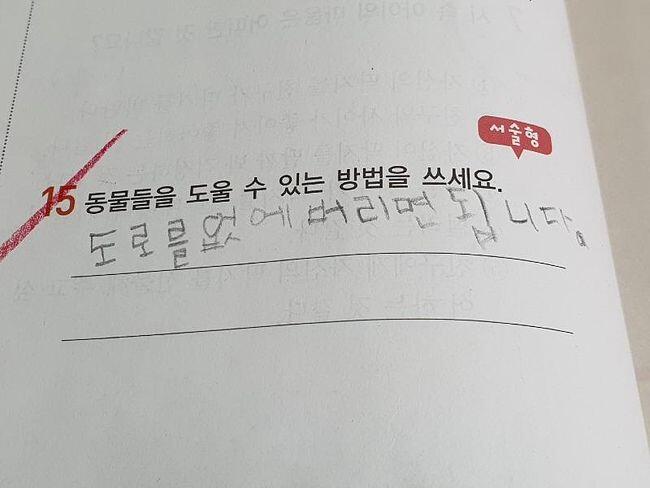 서술형
15 동물들을 도울 수 있는 방법을 쓰세요.
도로를 없에 버리면 됩니다.